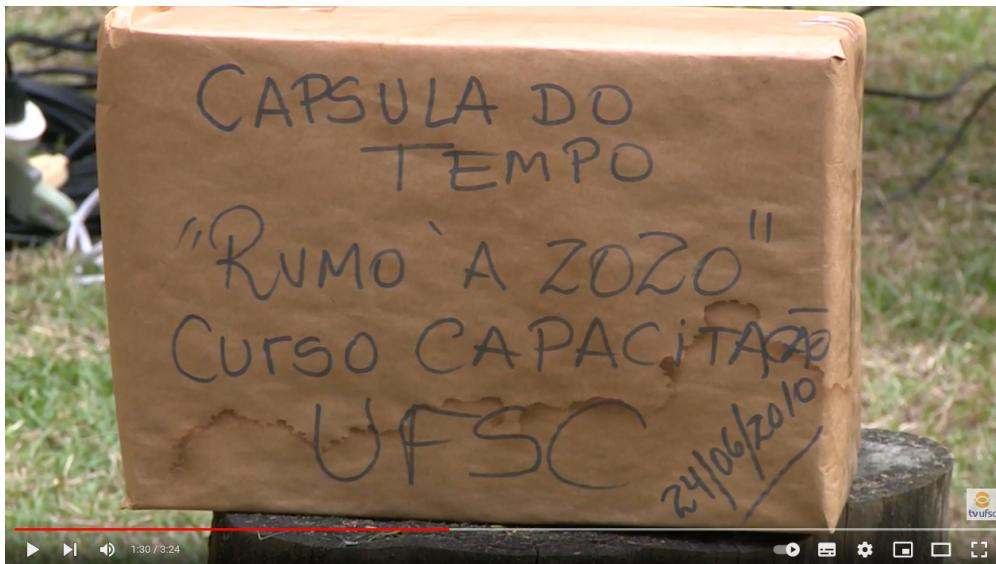 CAPSULA DO
TEMPO
"RUMO À 2020"
CURSO CAPACITAÇÃO
UFSC
24/06/2010
tv ufsc
1:30 / 3:24